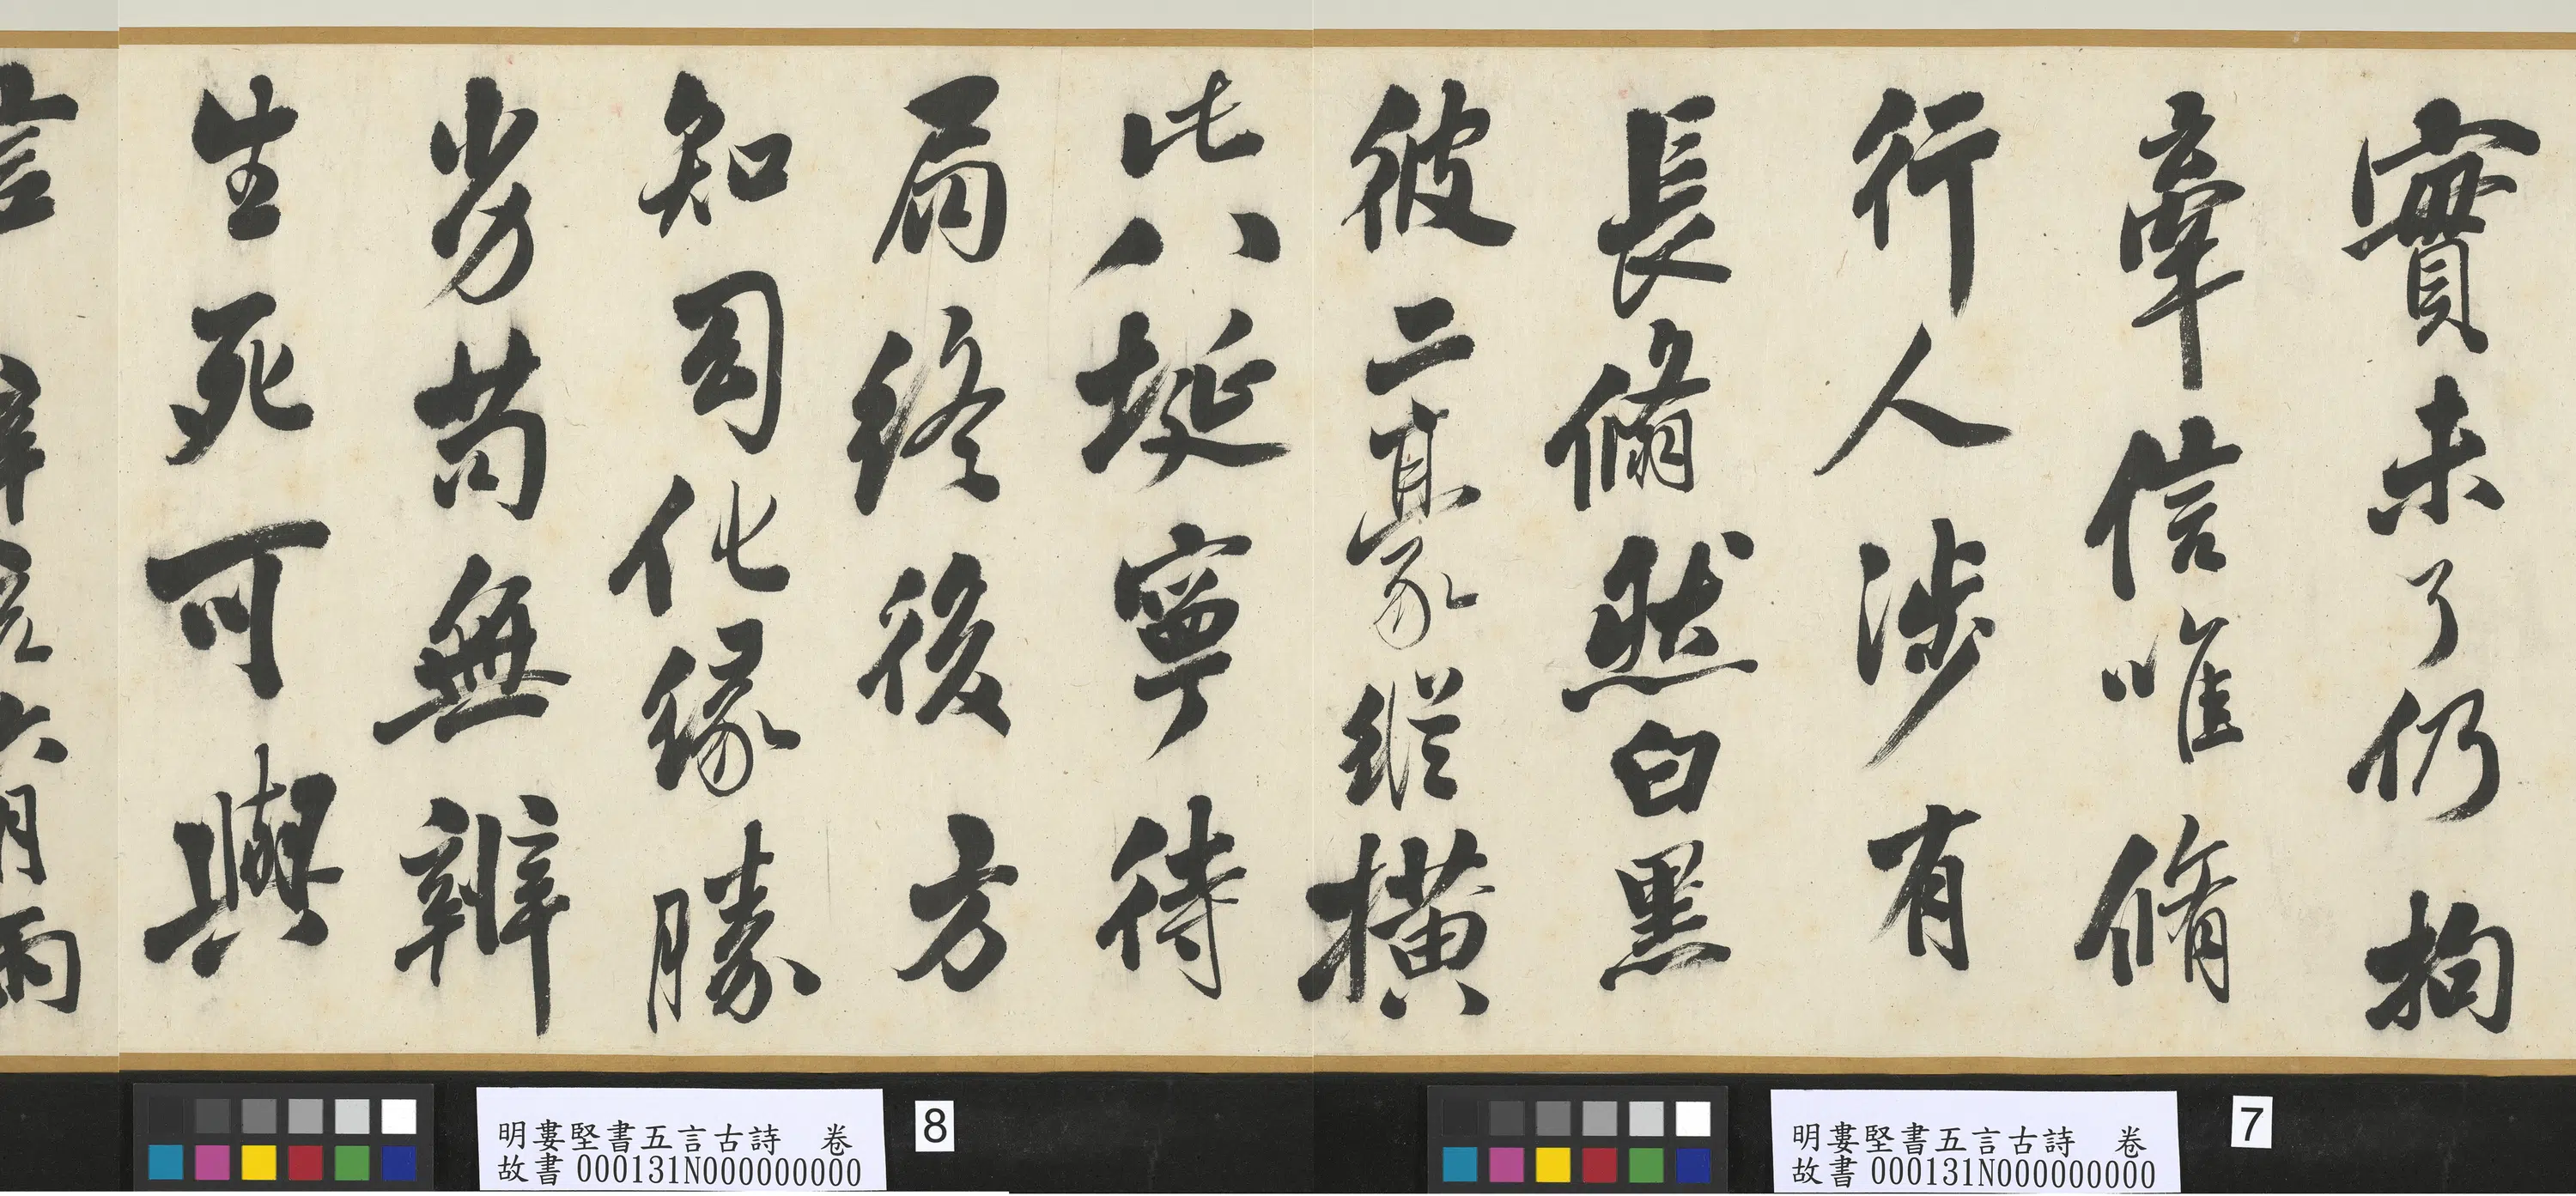 實未了仍拘
牽信唯脩
行人涉有
長翛然白黑
彼二豪縱橫
此八埏寧待
扃終後方
知司化緣勝
劣苟無辨
生死可與
言 辛亥六月雨
明婁堅書五言古詩 卷
故書000131N000000000
7
明婁堅書五言古詩 卷
故書000131N000000000
8